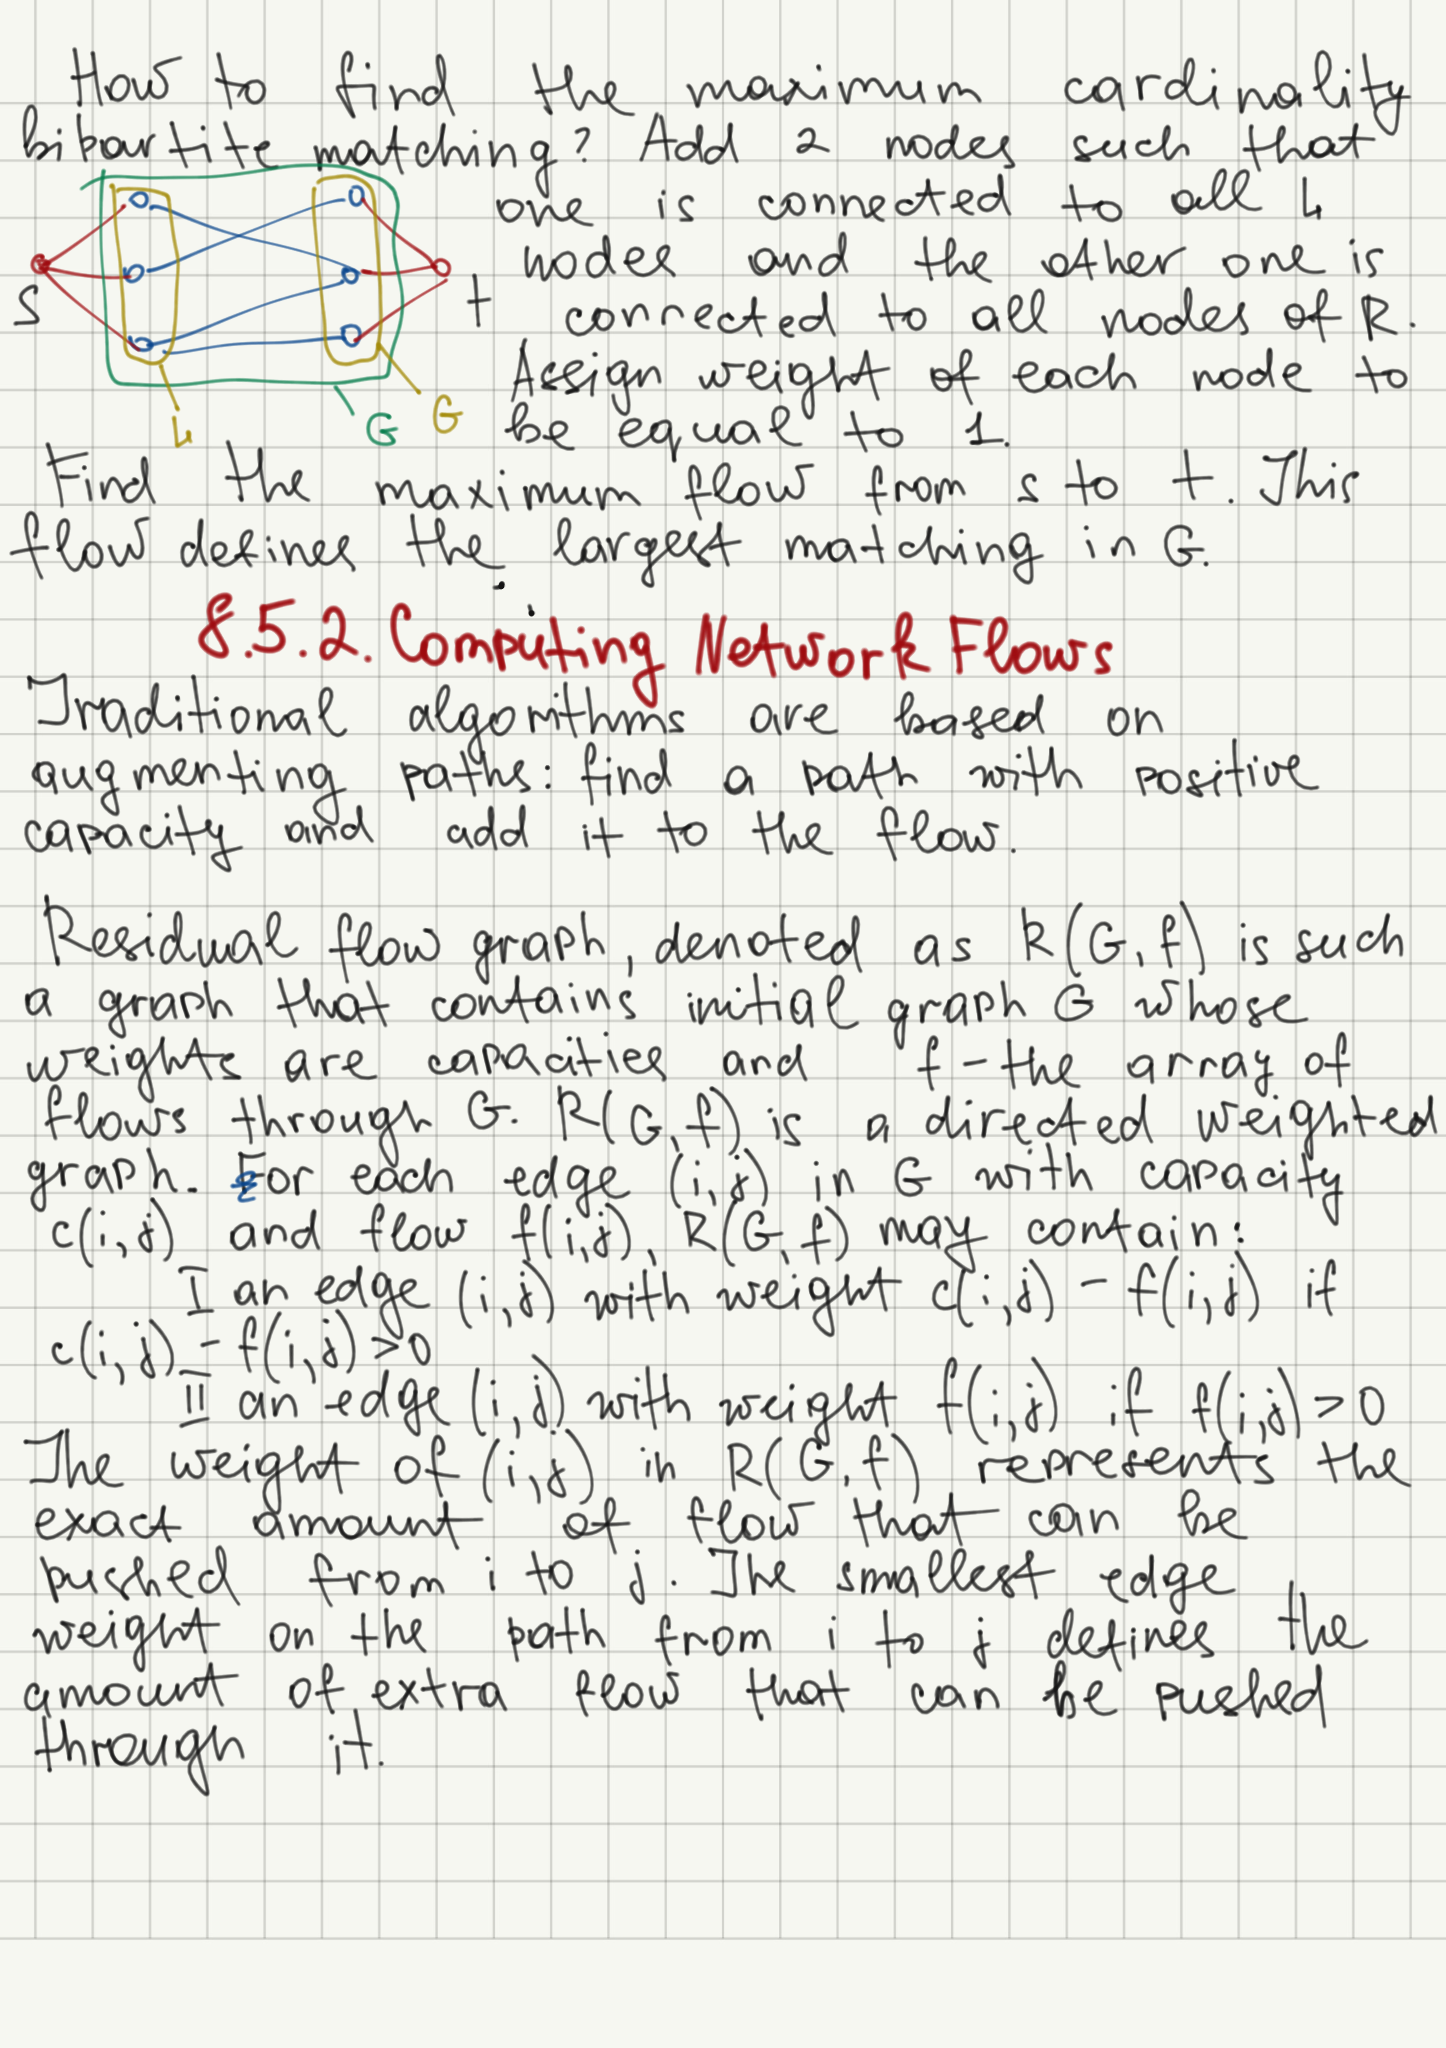 How to find the maximum cardinality
bibartite matching? Add 2 nodes such that
one is connected to all L
nodes and the other one is
connected to all nodes of R.
Assign weight of each node to
be equal to 1.
S
t
L
G
G
Find the maximum flow from s to t. This
flow defines the largest matching in G.
8.5.2. Computing Network Flows
Traditional algorithms are based on
augmenting paths: find a path with positive
capacity and add it to the flow.
Residual flow graph, denoted as R(G,f) is such
a graph that contains initial graph G whose
weights are capacities and f - the array of
flows through G. R(G,f) is a directed weighted
graph. For each edge (i,j) in G with capacity
c(i,j) and flow f(i,j), R(G,f) may contain:
I an edge (i,j) with weight c(i,j) - f(i,j) if
c(i,j) - f(i,j) > 0
II an edge (i,j) with weight f(i,j) if f(i,j) > 0
The weight of (i,j) in R(G,f) represents the
exact amount of flow that can be
pushed from i to j. The smallest edge
weight on the path from i to j defines the
amount of extra flow that can be pushed
through it.